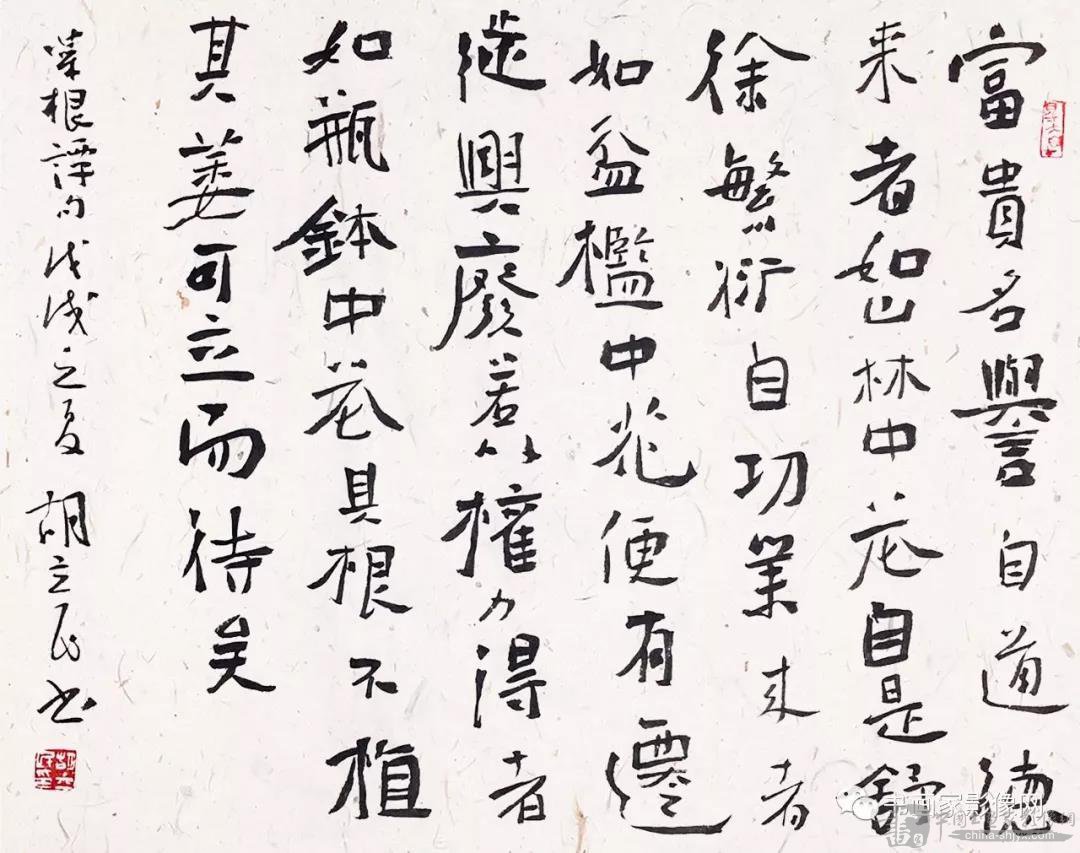 富貴名譽自道德
来者如山林中花自是舒
徐繁衍自功業来者
如盆檻中花便有遷
徙興廢若以權力得者
如瓶鉢中花其根不植
其萎可立而待矣
菜根譚句戊戌之夏 胡立民书
书画家影像网
china-shjyx.com